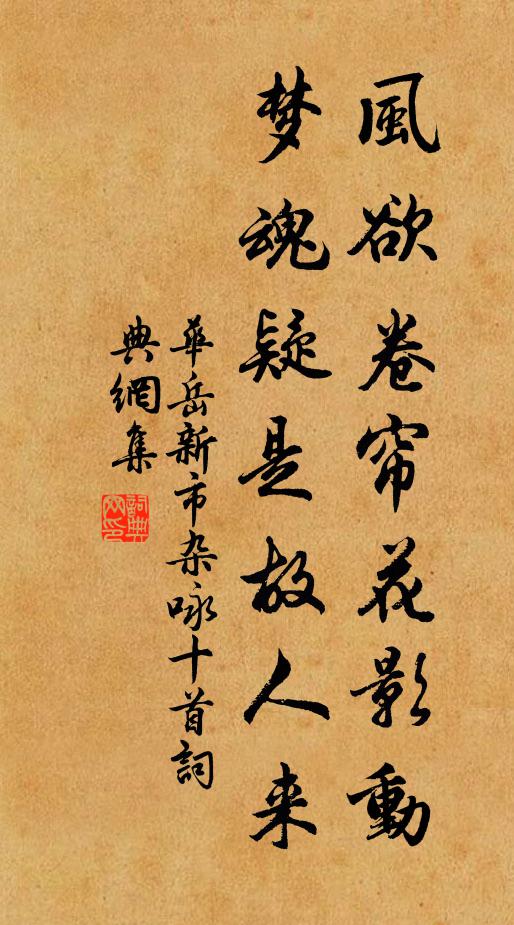 風欲卷帘花影動
梦魂疑是故人来
華岳新市杂咏十首詞
典網集
詞典
网印